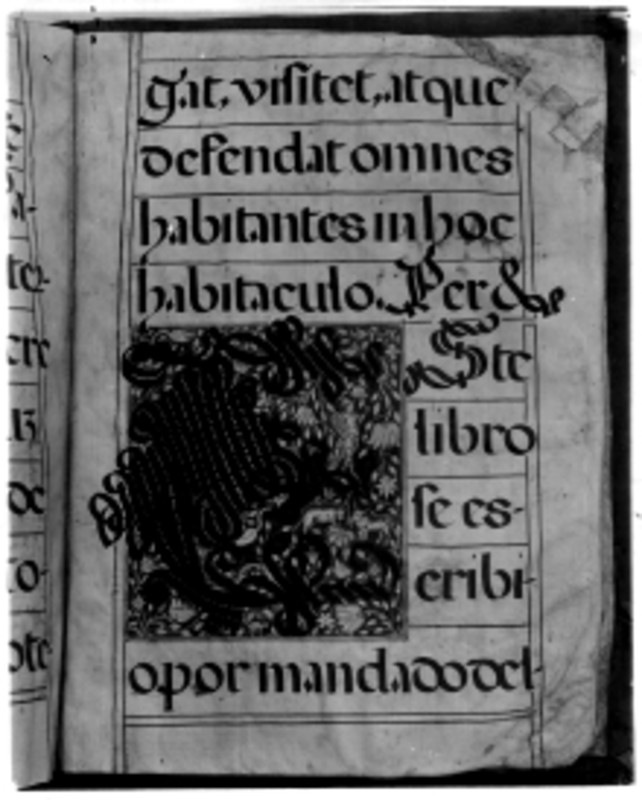 gat, visitet, atque
defendat omnes
habitantes in hoc
habitaculo. Per &
Ste
libro
se es-
cribi-
o por mandado del